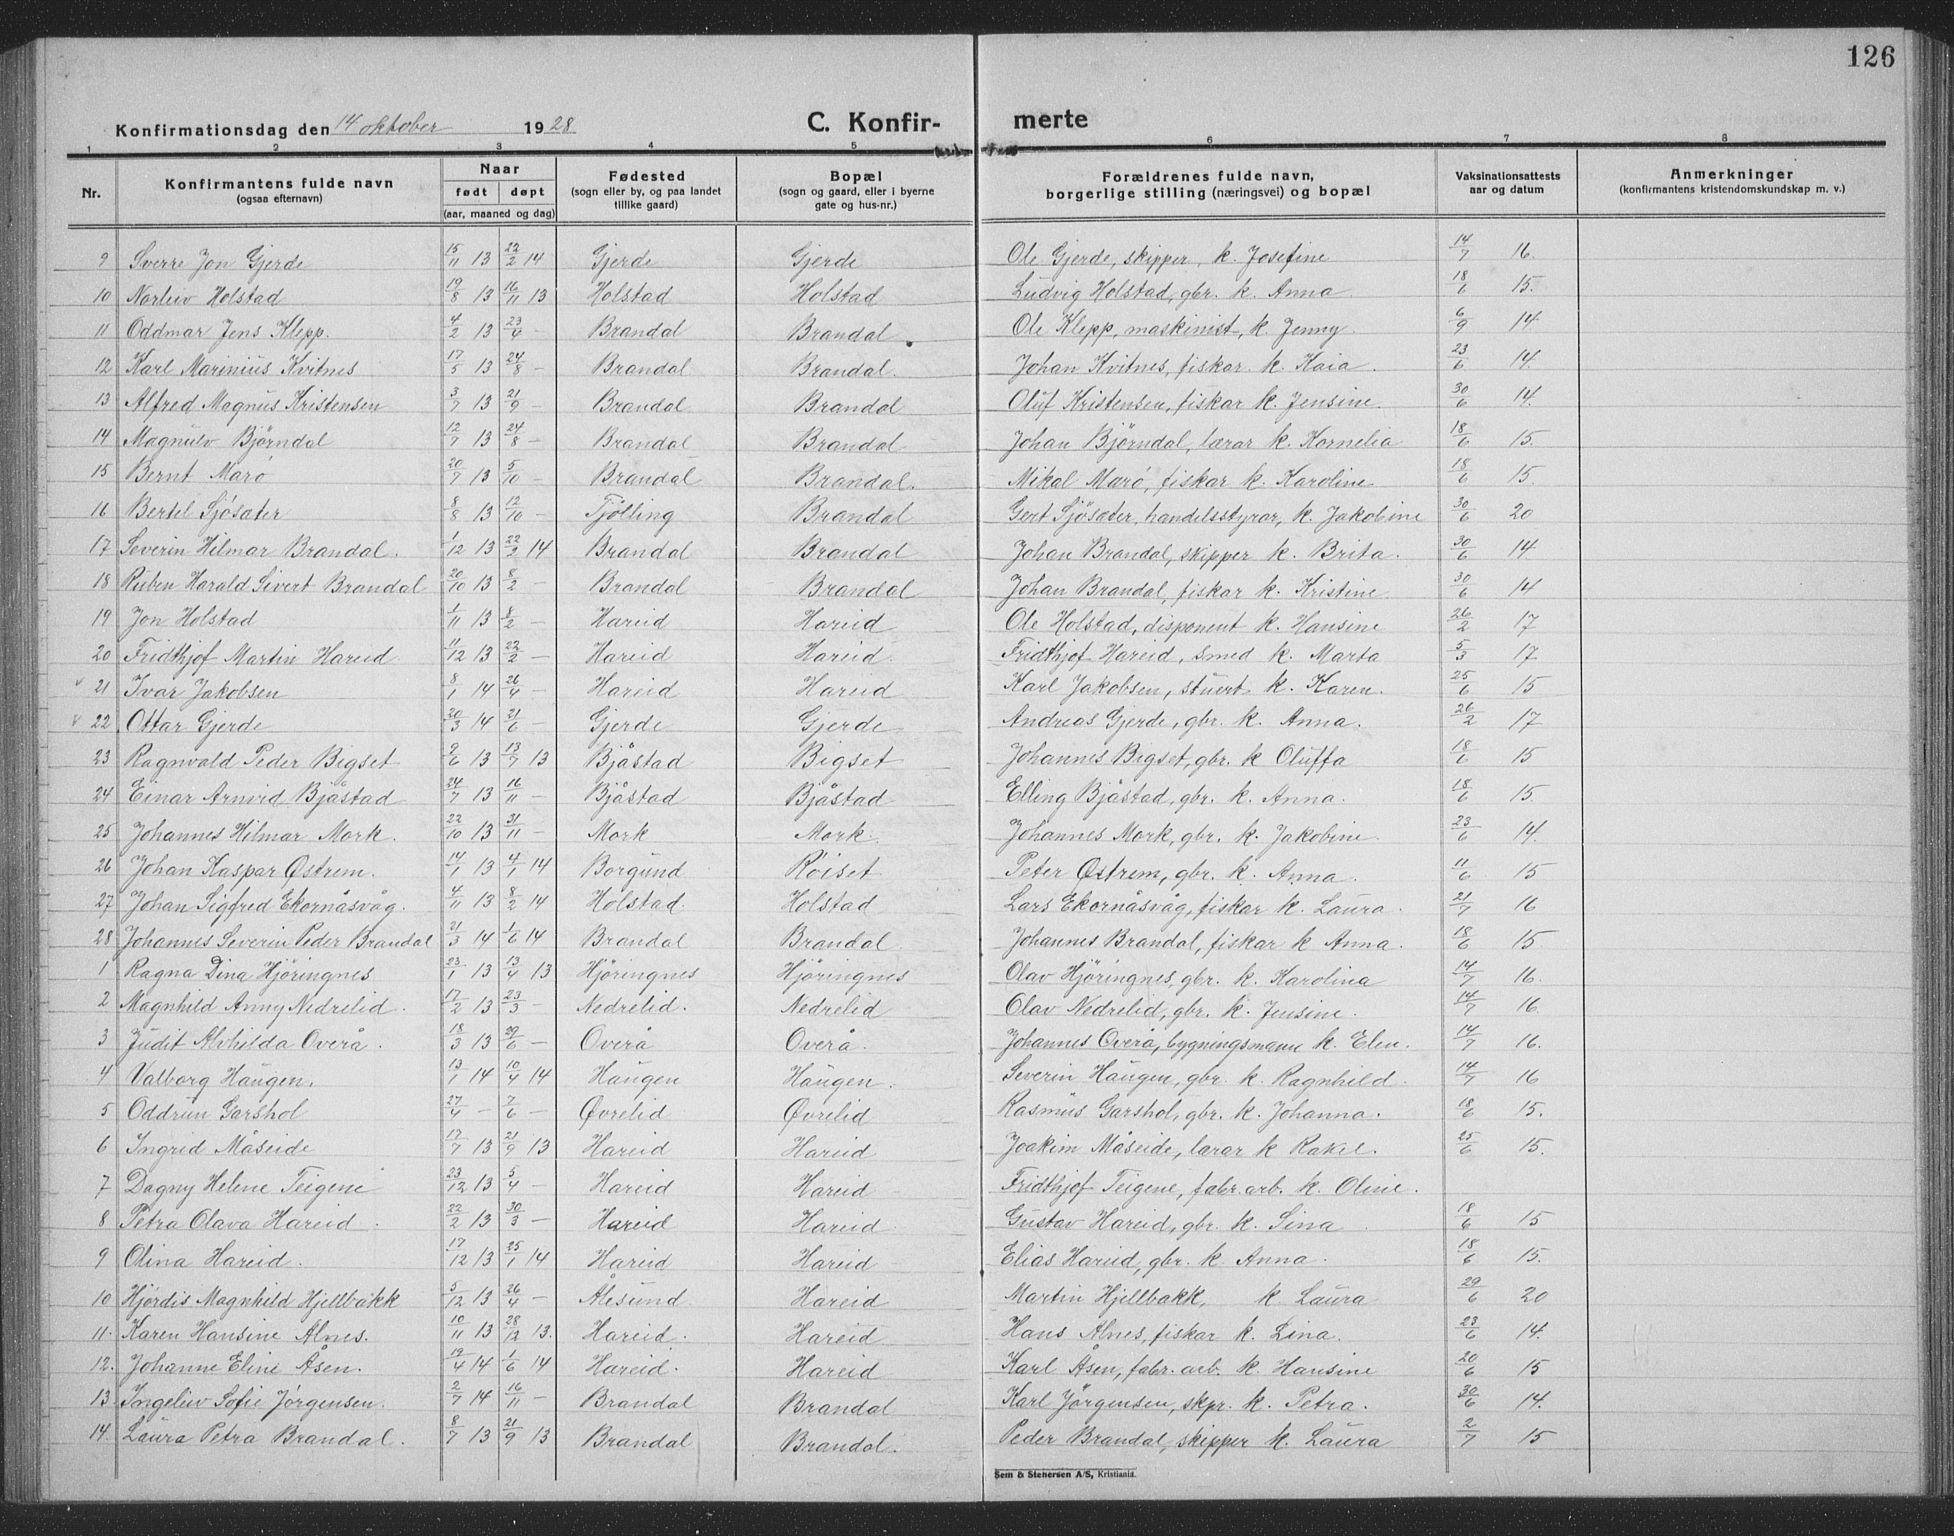 126
Konfirmationsdag den 14 oktober 1928 C. Konfir- merte
1 2 3 4 5 6 7 8
Nr. Konfirmantens fulde navn (ogsaa efternavn) Naar født døpt (aar, maaned og dag) Fødested (sogn eller by, og paa landet tillike gaard) Bopæl (sogn og gaard, eller i byerne gate og hus-nr.) Forældrenes fulde navn, borgerlige stilling (næringsvei) og bopæl Vaksinationsattests aar og datum Anmerkninger (konfirmantens kristendomskundskap m. v.)
9 Sverre Jon Gjerde 15/11 13 22/2 14 Gjerde Gjerde Ole Gjerde, skipper, k. Josefine 14/7 16.
10 Norleiv Holstad 19/8 13 16/11 13 Holstad Holstad Ludvig Holstad, gbr. k. Anna 18/6 15.
11 Oddmar Jens Klepp. 4/2 13 23/4 — Brandal Brandal Ole Klepp, maskinist, k. Jenny. 6/9 14
12 Karl Marinius Kvitnes 17/5 13 24/8 — Brandal Brandal. Johan Kvitnes, fiskar. k. Kaia. 23/6 14.
13 Alfred Magnus Kristensen 3/7 13 21/9 — Brandal Brandal Oluf Kristensen, fiskar k. Jensine. 30/6 14.
14 Magnulv Bjørndal 12/7 13 24/8 — Brandal Brandal Johan Bjørndal, lærar k. Kornelia 18/6 15.
15 Bernt Marø 20/7 13 5/10 — Brandal Brandal. Mikal Marø, fiskar k. Karoline 18/6 15.
16 Bertel Sjøsæter 8/8 13 12/10 — Tjølling Brandal Gert Sjøsæter, handelsstyrar, k. Jakobine 30/6 20
17 Severin Hilmar Brandal. 1/12 13 22/2 14 Brandal Brandal Johan Brandal, skipper k. Brita. 30/6 14
18 Ruben Harald Sivert Brandal 20/10 13 8/2 — Brandal Brandal Johan Brandal, fiskar k. Kristine 30/6 14
19 Jon Holstad 1/11 13 8/2 — Hareid Hareid Ole Holstad, disponent k. Hansine 26/2 17
20 Fridthjof Martin Hareid 11/12 13 22/2 — Hareid Hareid. Fridthjof Hareid, smed k. Marta 5/3 17
v 21 Ivar Jakobsen 8/1 14 26/4 — Hareid Hareid Karl Jakobsen, stuert k. Karen. 25/6 15
v 22 Ottar Gjerde 20/3 14 21/6 — Gjerde Gjerde Andreas Gjerde, gbr. k. Anna. 26/2 17
23 Ragnvald Peder Bigset 2/6 13 13/7 13 Bjåstad Bigset Johannes Bigset, gbr. k Oluffa 18/6 15
24 Einar Arnvid Bjåstad 24/7 13 16/11 — Bjåstad Bjåstad Elling Bjåstad, gbr. k. Anna. 18/6 15.
25 Johannes Hilmar Mork. 22/10 13 31/11 — Mork Mork. Johannes Mork, gbr. k. Jakobine. 23/6 14.
26 Johan Kaspar Østrem. 14/1 13 4/1 14 Borgund Röiset Peter Østrem, gbr. k. Anna. 11/6 15
27 Johan Sigfred Ekornåsvåg. 4/11 13 8/2 14 Holstad. Holstad Lars Ekornåsvåg, fiskar k. Laura. 21/7 16
28 Johannes Severin Peder Brandal 21/3 14 1/6 14 Brandal Brandal Johannes Brandal, fiskar k Anna. 18/6 15
1 Ragna Dina Hjöringnes 23/1 13 13/4 13 Hjöringnes Hjöringnes Olav Hjöringnes, gbr. k. Karolina 14/7 16.
2 Magnhild Anny Nedrelid. 17/2 13 23/3 — Nedrelid. Nedrelid Olav Nedrelid, gbr. k. Jensine. 14/7 16.
3 Judit Alvhilda Overå. 18/3 13 29/6 — Overå Overå. Johannes Overå, bygningsmann k. Elen. 14/7 16.
4 Valborg Haugen. 13/1 14 10/4 14 Haugen Haugen. Severin Haugen, gbr. k. Ragnhild. 14/7 16
5 Oddrun Garshol 27/4 — 7/6 — Øvrelid Øvrelid Rasmus Garshol, gbr. k. Johanna. 18/6 15.
6 Ingrid Måseide 17/7 13 21/9 13 Hareid Hareid Joakim Måseide, lærar k Rakel. 25/6 15.
7 Dagny Helene Teigene 23/12 13 5/4 — Hareid Hareid Fridthjof Teigene, fabr. arb. k. Oline.
8 Petra Olava Hareid. 22/2 13 30/3 — Hareid Hareid. Gustav Hareid, gbr. k. Sina. 18/6 15
9 Olina Hareid. 17/12 13 25/1 14 Hareid Hareid Elias Hareid, gbr. k Anna. 18/6 15.
10 Hjördis Magnhild Hjellbakk 5/12 13 26/4 — Ålesund. Hareid Martin Hjellbakk, k Laura 29/6 20
11. Karen Hansine Alnes. 10/11 13 28/12 13. Hareid. Hareid Hans Alnes, fiskar k. Lina. 23/6 14.
12. Johanne Eline Åsen. 19/4 14 1/6 14 Hareid. Hareid Karl Åsen, fabr. arb. k. Hansine 20/6 15
13. Ingeliv Sofie Jörgensen. 2/7 14 16/11 — Brandal Brandal Karl Jörgensen, skpr. k. Petra. 30/6 14.
14. Laura Petra Brandal. 8/7 13 21/9 13 Brandal Brandal. Peder Brandal, skipper k. Laura 2/7 15
Sem & Stenersen A/S, Kristiania.